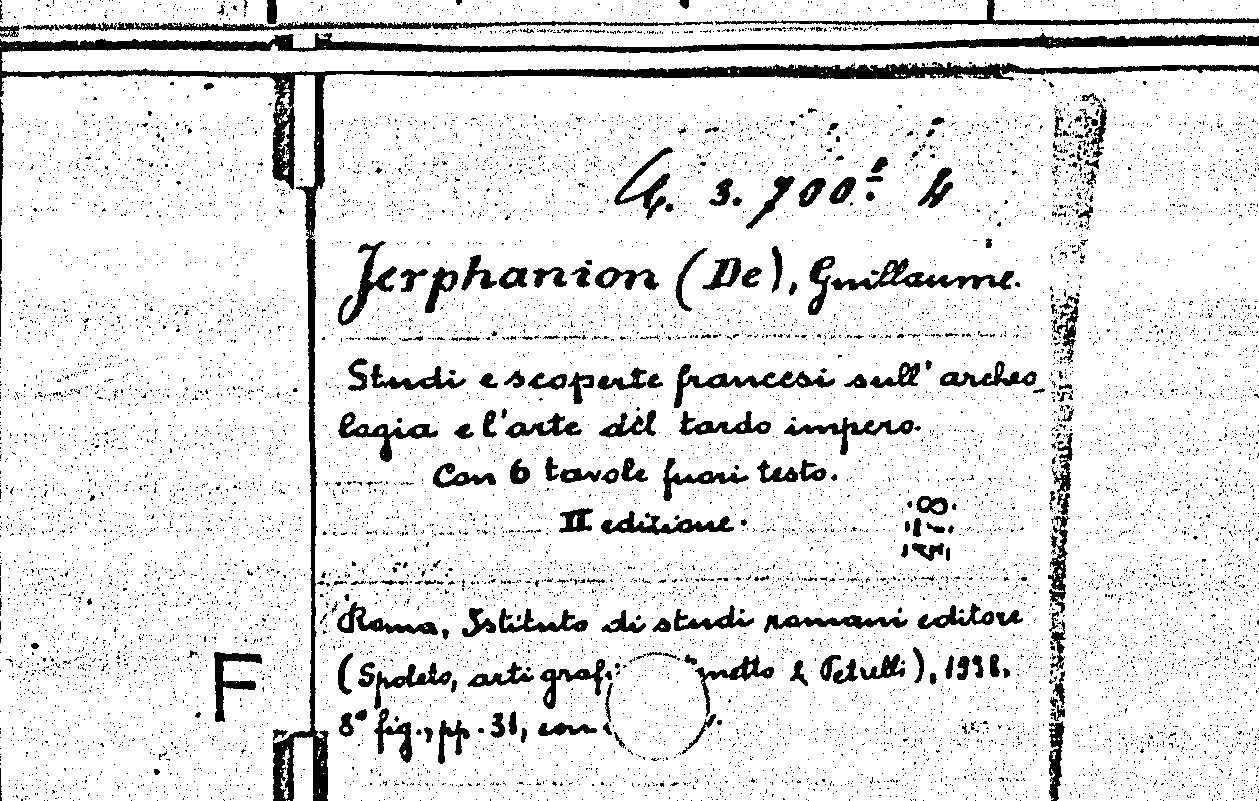 G. 3. 700.² 4
Jerphanion (De), Guillaume.
Studi e scoperte francesi sull' archeo_
logia e l'arte del tardo impero.
Con 6 tavole fuori testo.
II edizione.
Roma, Istituto di studi romani editore
(Spoleto, arti grafi netto & Petrelli), 1938.
8° fig., pp. 31, con
F